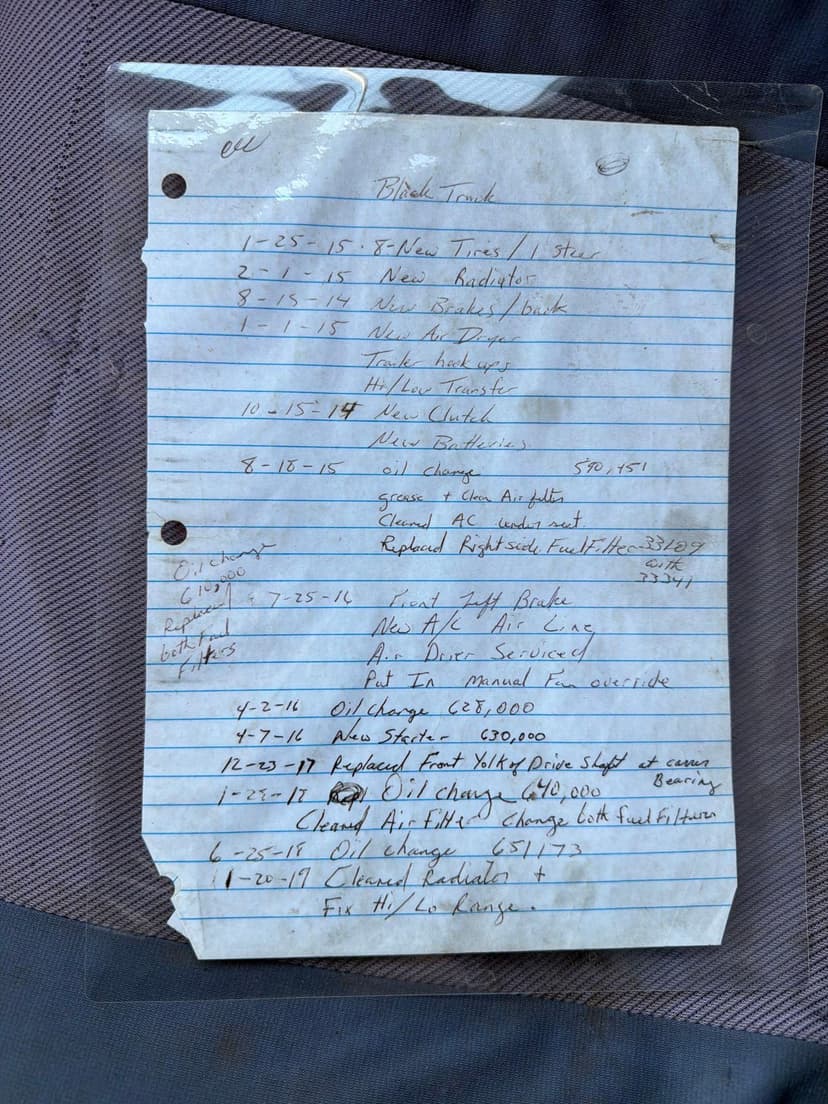 Black Truck
1-25-15 . 8-New Tires / 1 steer
2-1-15 New Radiator
8-15-14 New Brakes / back
1-1-15 New Air Dryer
Trailer hook ups
Hi/Low Transfer
10-15-14 New Clutch
New Batteries
8-18-15 oil change
grease + Clean Air filter
Cleaned AC under seat.
Replaced Right side Fuel Filter
with
33341
Oil change
610,000
Replaced
both Fuel
Filters
7-25-16 Front Left Brake
New A/C Air Line
Air Drier Serviced
Put In manual Fan override
4-2-16 Oil change 628,000
4-7-16 New Starter 630,000
12-23-17 Replaced Front Yolk of Drive Shaft at
Bearing
Oil change 640,000
Cleaned Air Filter change both fuel Filters
6-25-18 Oil change 651173
11-20-19 Cleaned Radiator +
Fix Hi/Lo Range.